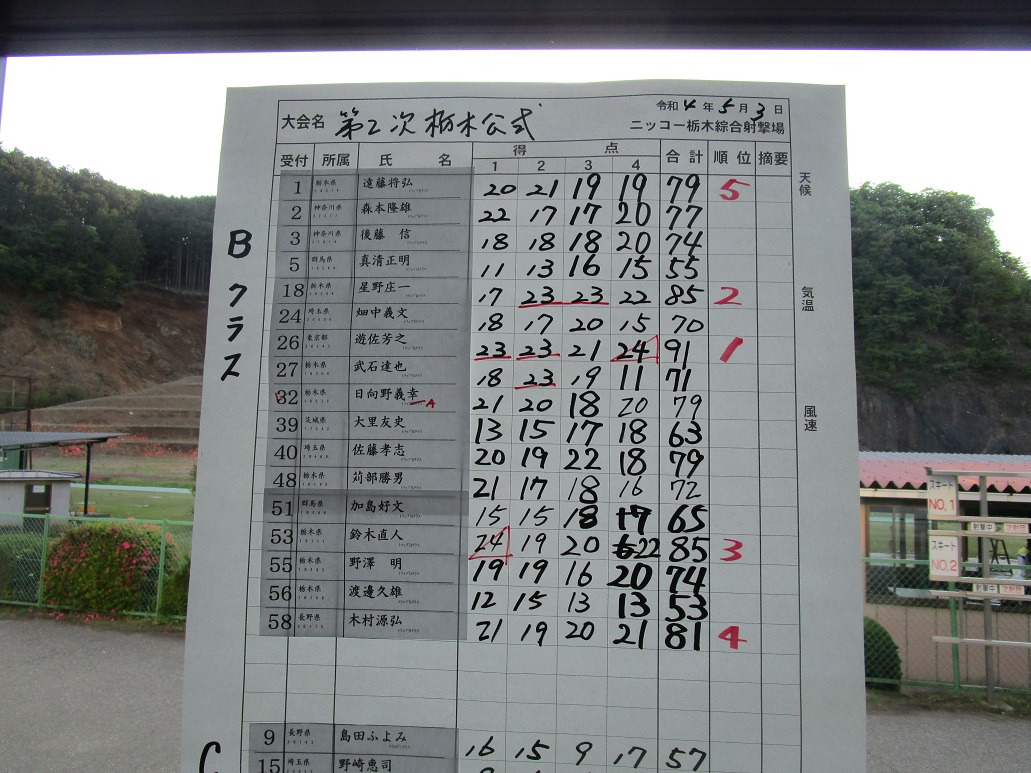 令和 4 年 5 月 3 日
大会名 第2次栃木公式 ニッコー栃木綜合射撃場
受付 所属 氏 名 得 点 合計 順位 摘要
1 2 3 4
天候
気温
風速
Bクラス
1 栃木県 遠藤将弘 20 21 19 19 79 5
2 神奈川県 森本隆雄 22 17 17 20 77
3 神奈川県 後藤 信 18 18 18 20 74
5 群馬県 真清正明 11 13 16 15 55
18 栃木県 星野庄一 17 23 23 22 85 2
24 埼玉県 畑中義文 18 17 20 15 70
26 東京都 遊佐芳之 23 23 21 24 91 1
27 栃木県 武石達也 18 23 19 11 71
32 栃木県 日向野義幸 A 21 20 18 20 79
39 茨城県 大里友史 13 15 17 18 63
40 埼玉県 佐藤孝志 20 19 22 18 79
48 栃木県 苅部勝男 21 17 18 16 72
51 群馬県 加島好文 15 15 18 17 65
53 栃木県 鈴木直人 24 19 20 22 85 3
55 栃木県 野澤 明 19 19 16 20 74
56 栃木県 渡邊久雄 12 15 13 13 53
58 長野県 木村源弘 21 19 20 21 81 4
C
9 長野県 島田ふよみ 16 15 9 17 57
15 埼玉県 野崎恵司
スキート
NO,1
射撃中
スキート
NO.2
射撃中